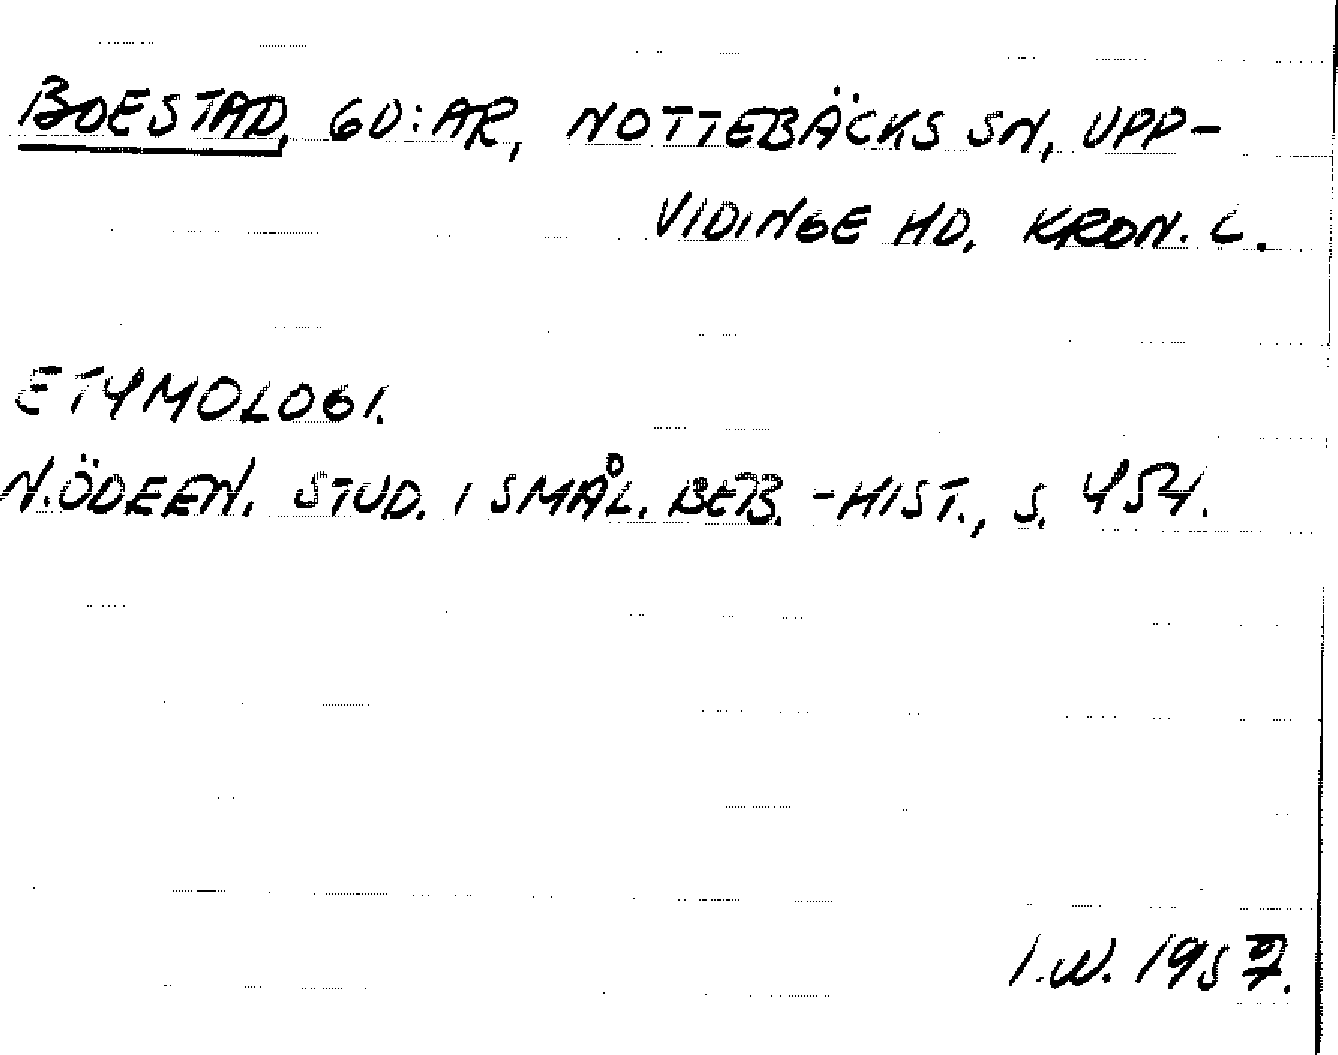 BOESTAD, GD:AR, NOTTEBÄCKS SN, UPP-
VIDINGE HD, KRON. L.
ETYMOLOGI.
N. ÖDEEN. STUD. I SMÅL. BEB. -HIST., S. 454.
I.W. 1957.